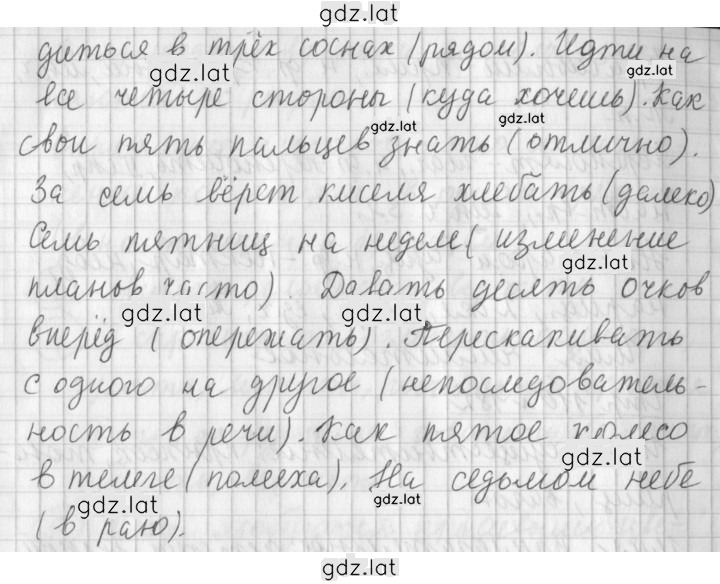 gdz.lat
диться в трёх соснах (рядом). Идти на
gdz.lat gdz.lat
все четыре стороны (куда хочешь). Как
gdz.lat gdz.lat
свои пять пальцев знать (отлично).
За семь вёрст киселя хлебать (далеко)
Семь пятниц на неделе ( изменение
gdz.lat
планов часто). Давать десять очков
gdz.lat gdz.lat
вперёд ( опережать). Перескакивать
с одного на другое (непоследователь-
ность в речи). Как пятое колесо
gdz.lat
в телеге (помеха). На седьмом небе
gdz.lat gdz.lat
(в раю).
gdz.lat